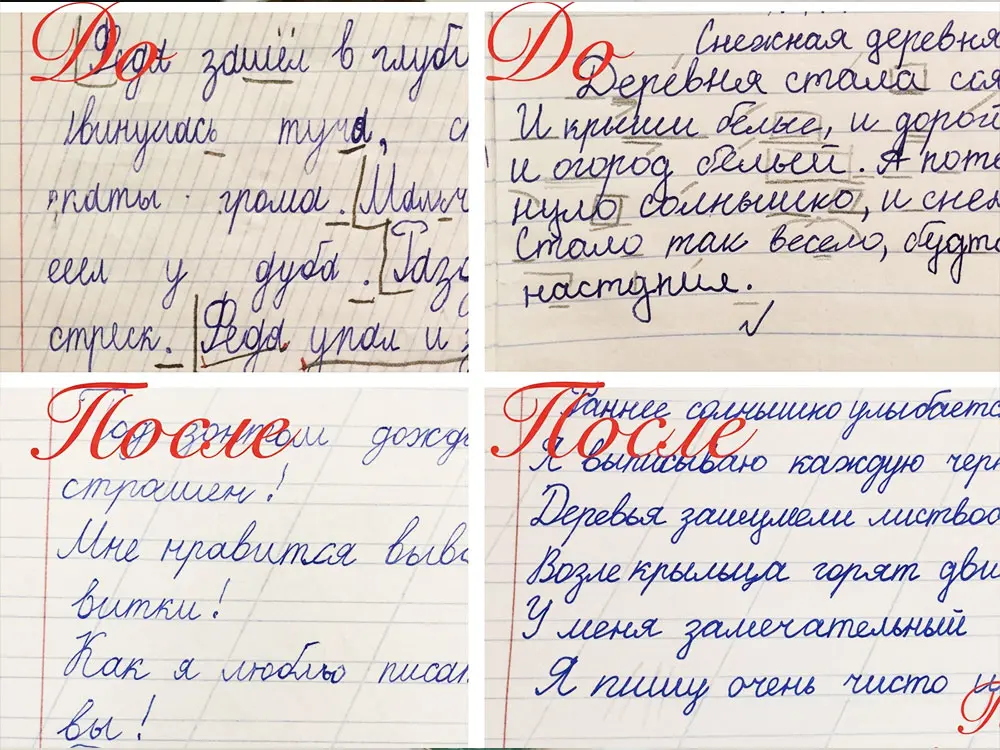 До
Федя зашёл в глуби
двинулась туча, с
каты грома. Мальч
сел у дуба. Разд
стреск. Федя упал и
До
Снежная деревня
Деревня стала сия
И крыши белые, и дорог
и огород белый. А пото
нуло солнышко, и снеж
Стало так весело, будто
наступил.
После
Под зонтом дождь
страшен!
Мне нравится выво
витки!
Как я люблю писат
вы!
После
Раннее солнышко улыбаетс
Я выписываю каждую черт
Деревья зашумели листвой
Возле крыльца горят две
У меня замечательный
Я пишу очень чисто и